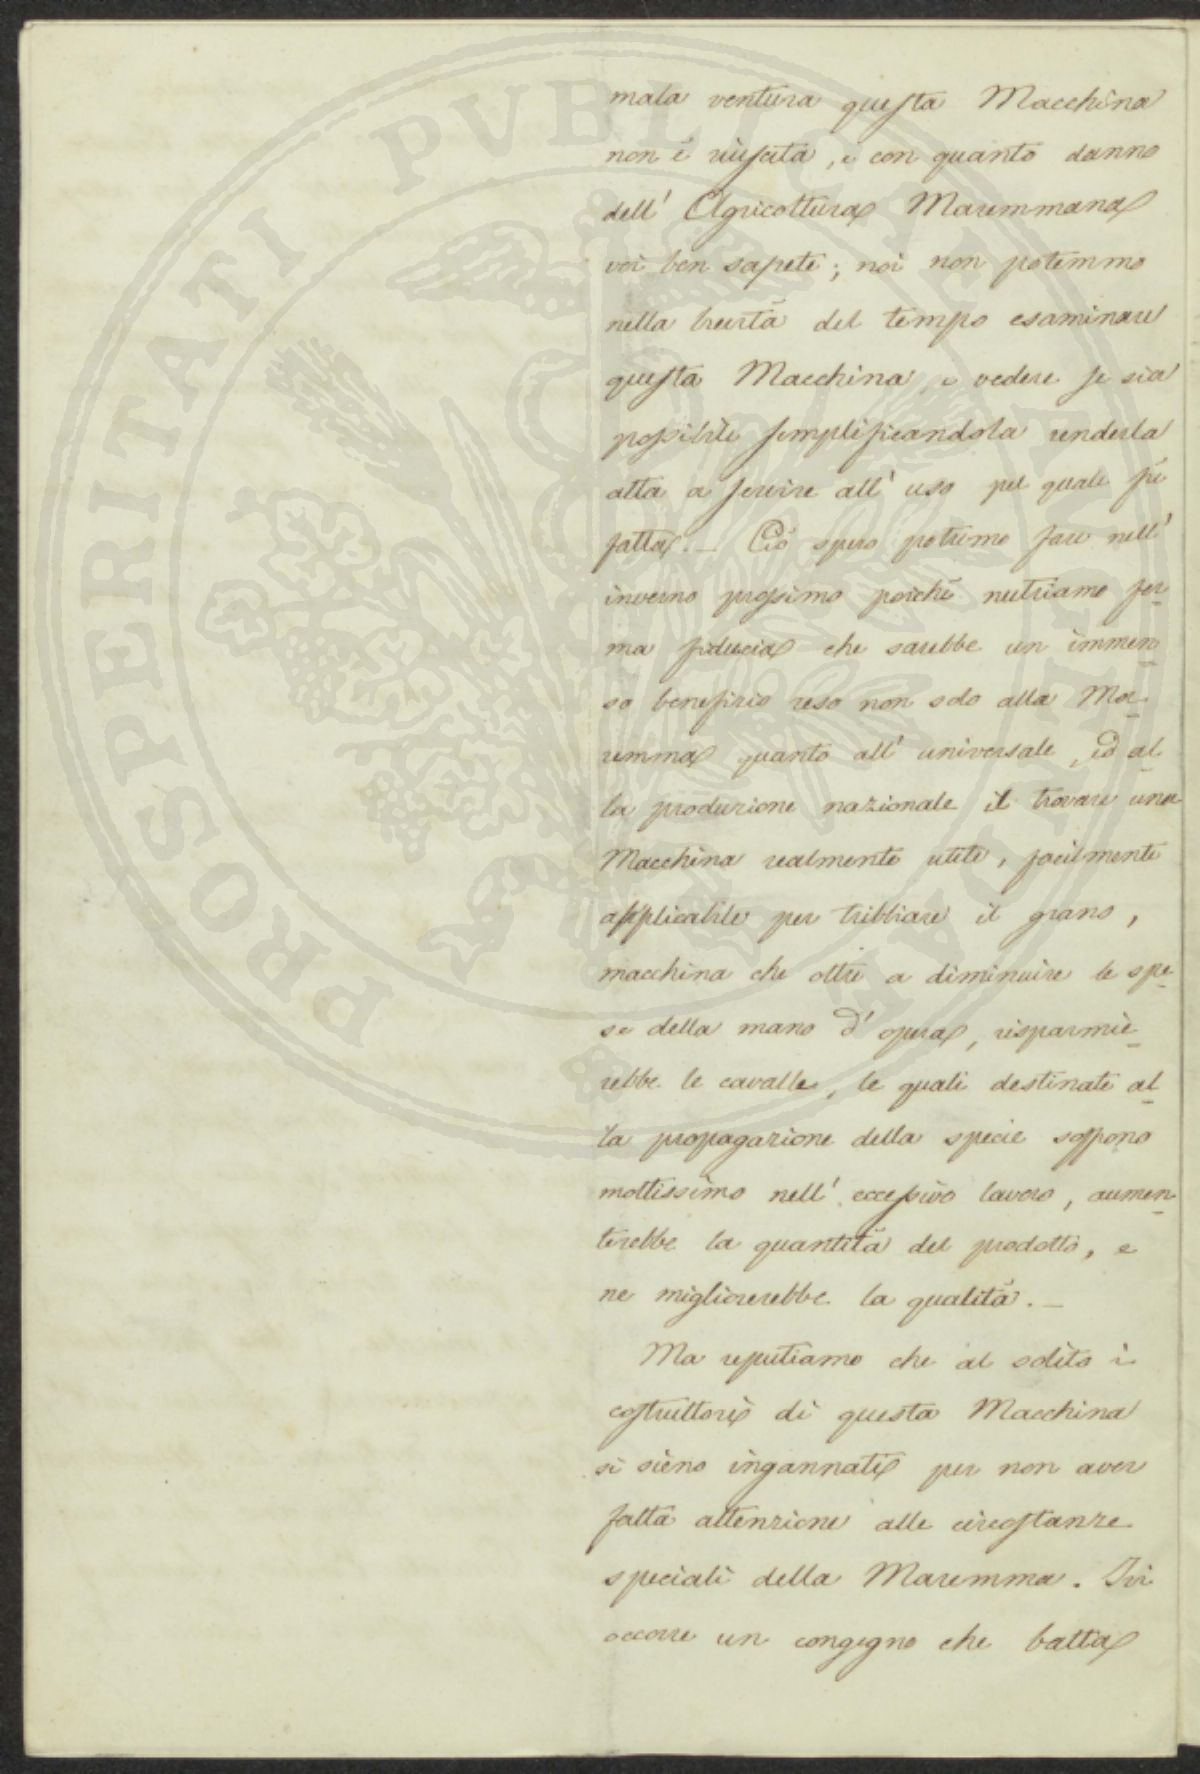 mala ventura questa Macchina
non è riuscita, e con quanto danno
dell' Agricoltura Maremmana
voi ben sapete; noi non potemmo
nella brevità del tempo esaminare
questa Macchina, e vedere se sia
possibile semplificandola renderla
atta a servire all' uso pel quale fù
fatta. — Ciò spero potremo fare nell'
inverno prossimo poichè nutriamo fer-
ma fiducia che sarebbe un immen-
so benefizio reso non solo alla Ma-
remma quanto all' universale, ed al-
la produzione nazionale il trovare una
Macchina realmente utile, facilmente
applicabile per tribbiare il grano,
macchina che oltre a diminuire le spe-
se della mano d' opera, risparmie-
rebbe le cavalle, le quali destinate al-
la propagazione della specie soffrono
moltissimo nell' eccessivo lavoro, aumen-
terebbe la quantità del prodotto, e
ne migliorerebbe la qualità. —
Ma reputiamo che al solito i
costruttori di questa Macchina
si sieno ingannati per non aver
fatta attenzione alle circostanze
speciali della Maremma. Ivi
occorre un congegno che batta
PROSPERITATI PUBLICAE AUGENDAE